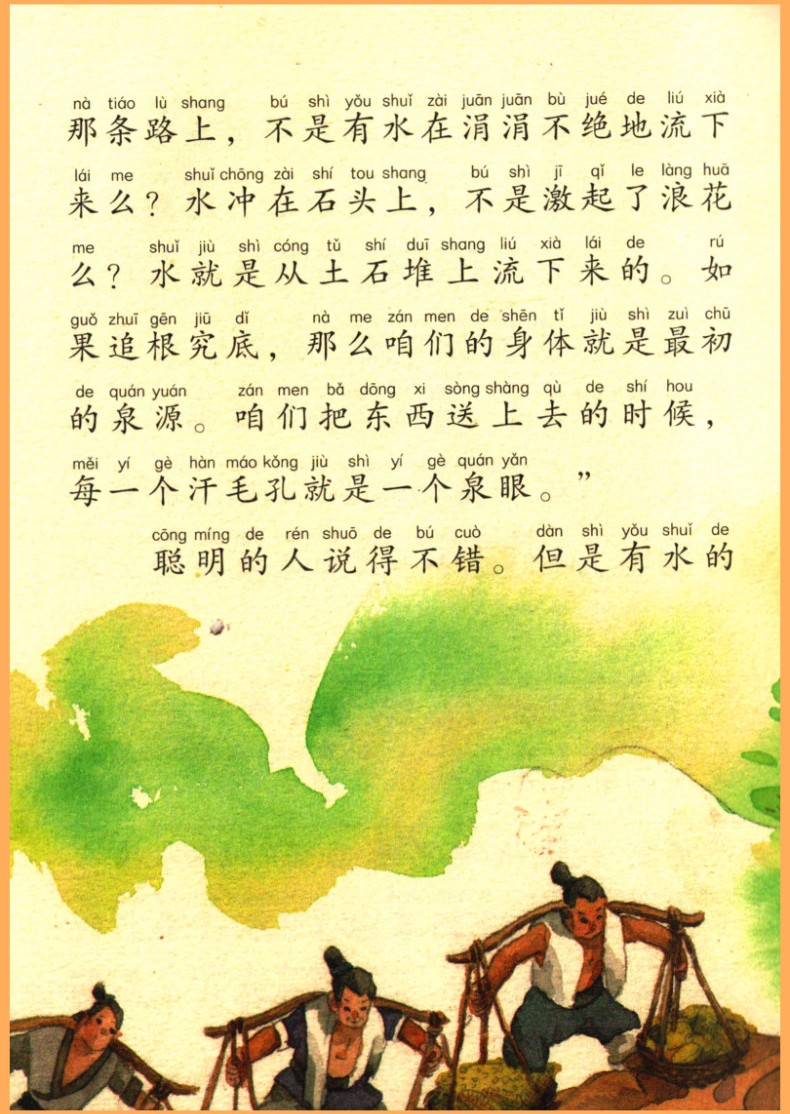 nà tiáo lù shang bú shì yǒu shuǐ zài juān juān bù jué de liú xià
那条路上，不是有水在涓涓不绝地流下
lái me shuǐ chōng zài shí tou shang bú shì jī qǐ le làng huā
来么？水冲在石头上，不是激起了浪花
me shuǐ jiù shì cóng tǔ shí duī shang liú xià lái de rú
么？水就是从土石堆上流下来的。如
guǒ zhuī gēn jiū dǐ nà me zán men de shēn tǐ jiù shì zuì chū
果追根究底，那么咱们的身体就是最初
de quán yuán zán men bǎ dōng xi sòng shàng qù de shí hou
的泉源。咱们把东西送上去的时候，
měi yí gè hàn máo kǒng jiù shì yí gè quán yǎn
每一个汗毛孔就是一个泉眼。”
cōng míng de rén shuō de bú cuò dàn shì yǒu shuǐ de
聪明的人说得不错。但是有水的